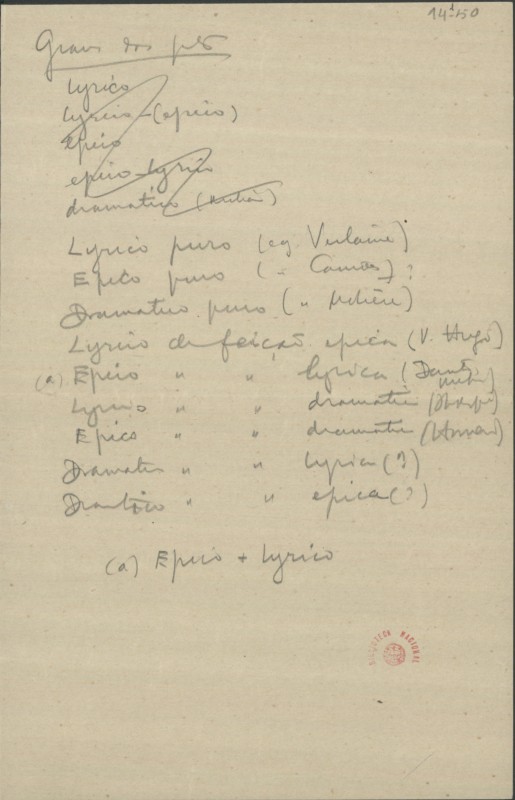 14¹-50
Graus dos
Lyrico
Lyrico-(epico)
Epico
epico-lyrico
dramatico (Molière)
Lyrico puro (eg Verlaine)
Epico puro (= Camões)?
Dramatico puro (" Molière)
Lyrico de feição epica (V. Hugo)
(a) Epico " " lyrica (Dante,
Lyrico " " dramatica
Epico " " dramatica (Homero)
Dramatico " " lyrica (?)
Dramatico " " epica (?)
(a) Epico + Lyrico
BIBLIOTECA NACIONAL